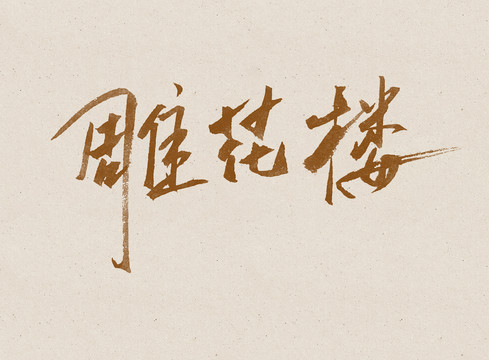 雕花楼